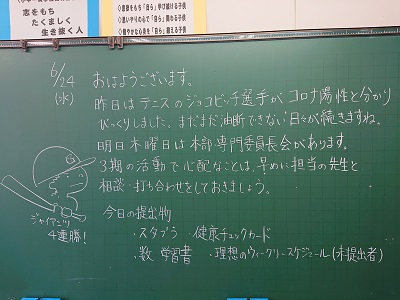 志をもち
たくましく
生き抜く人
6/24
(水)
おはようございます。
昨日はテニスのジョコビッチ選手がコロナ陽性と分かり
びっくりしました。まだまだ油断できない日々が続きますね。
明日木曜日は本部・専門委員長会があります。
3期の活動で心配なことは、早めに担当の先生と
相談・打ち合わせをしておきましょう。
今日の提出物
・スタプラ ・健康チェックカード
・数 学習書 ・理想のウィークリースケジュール(未提出者)
G
ジャイアンツ
4連勝!